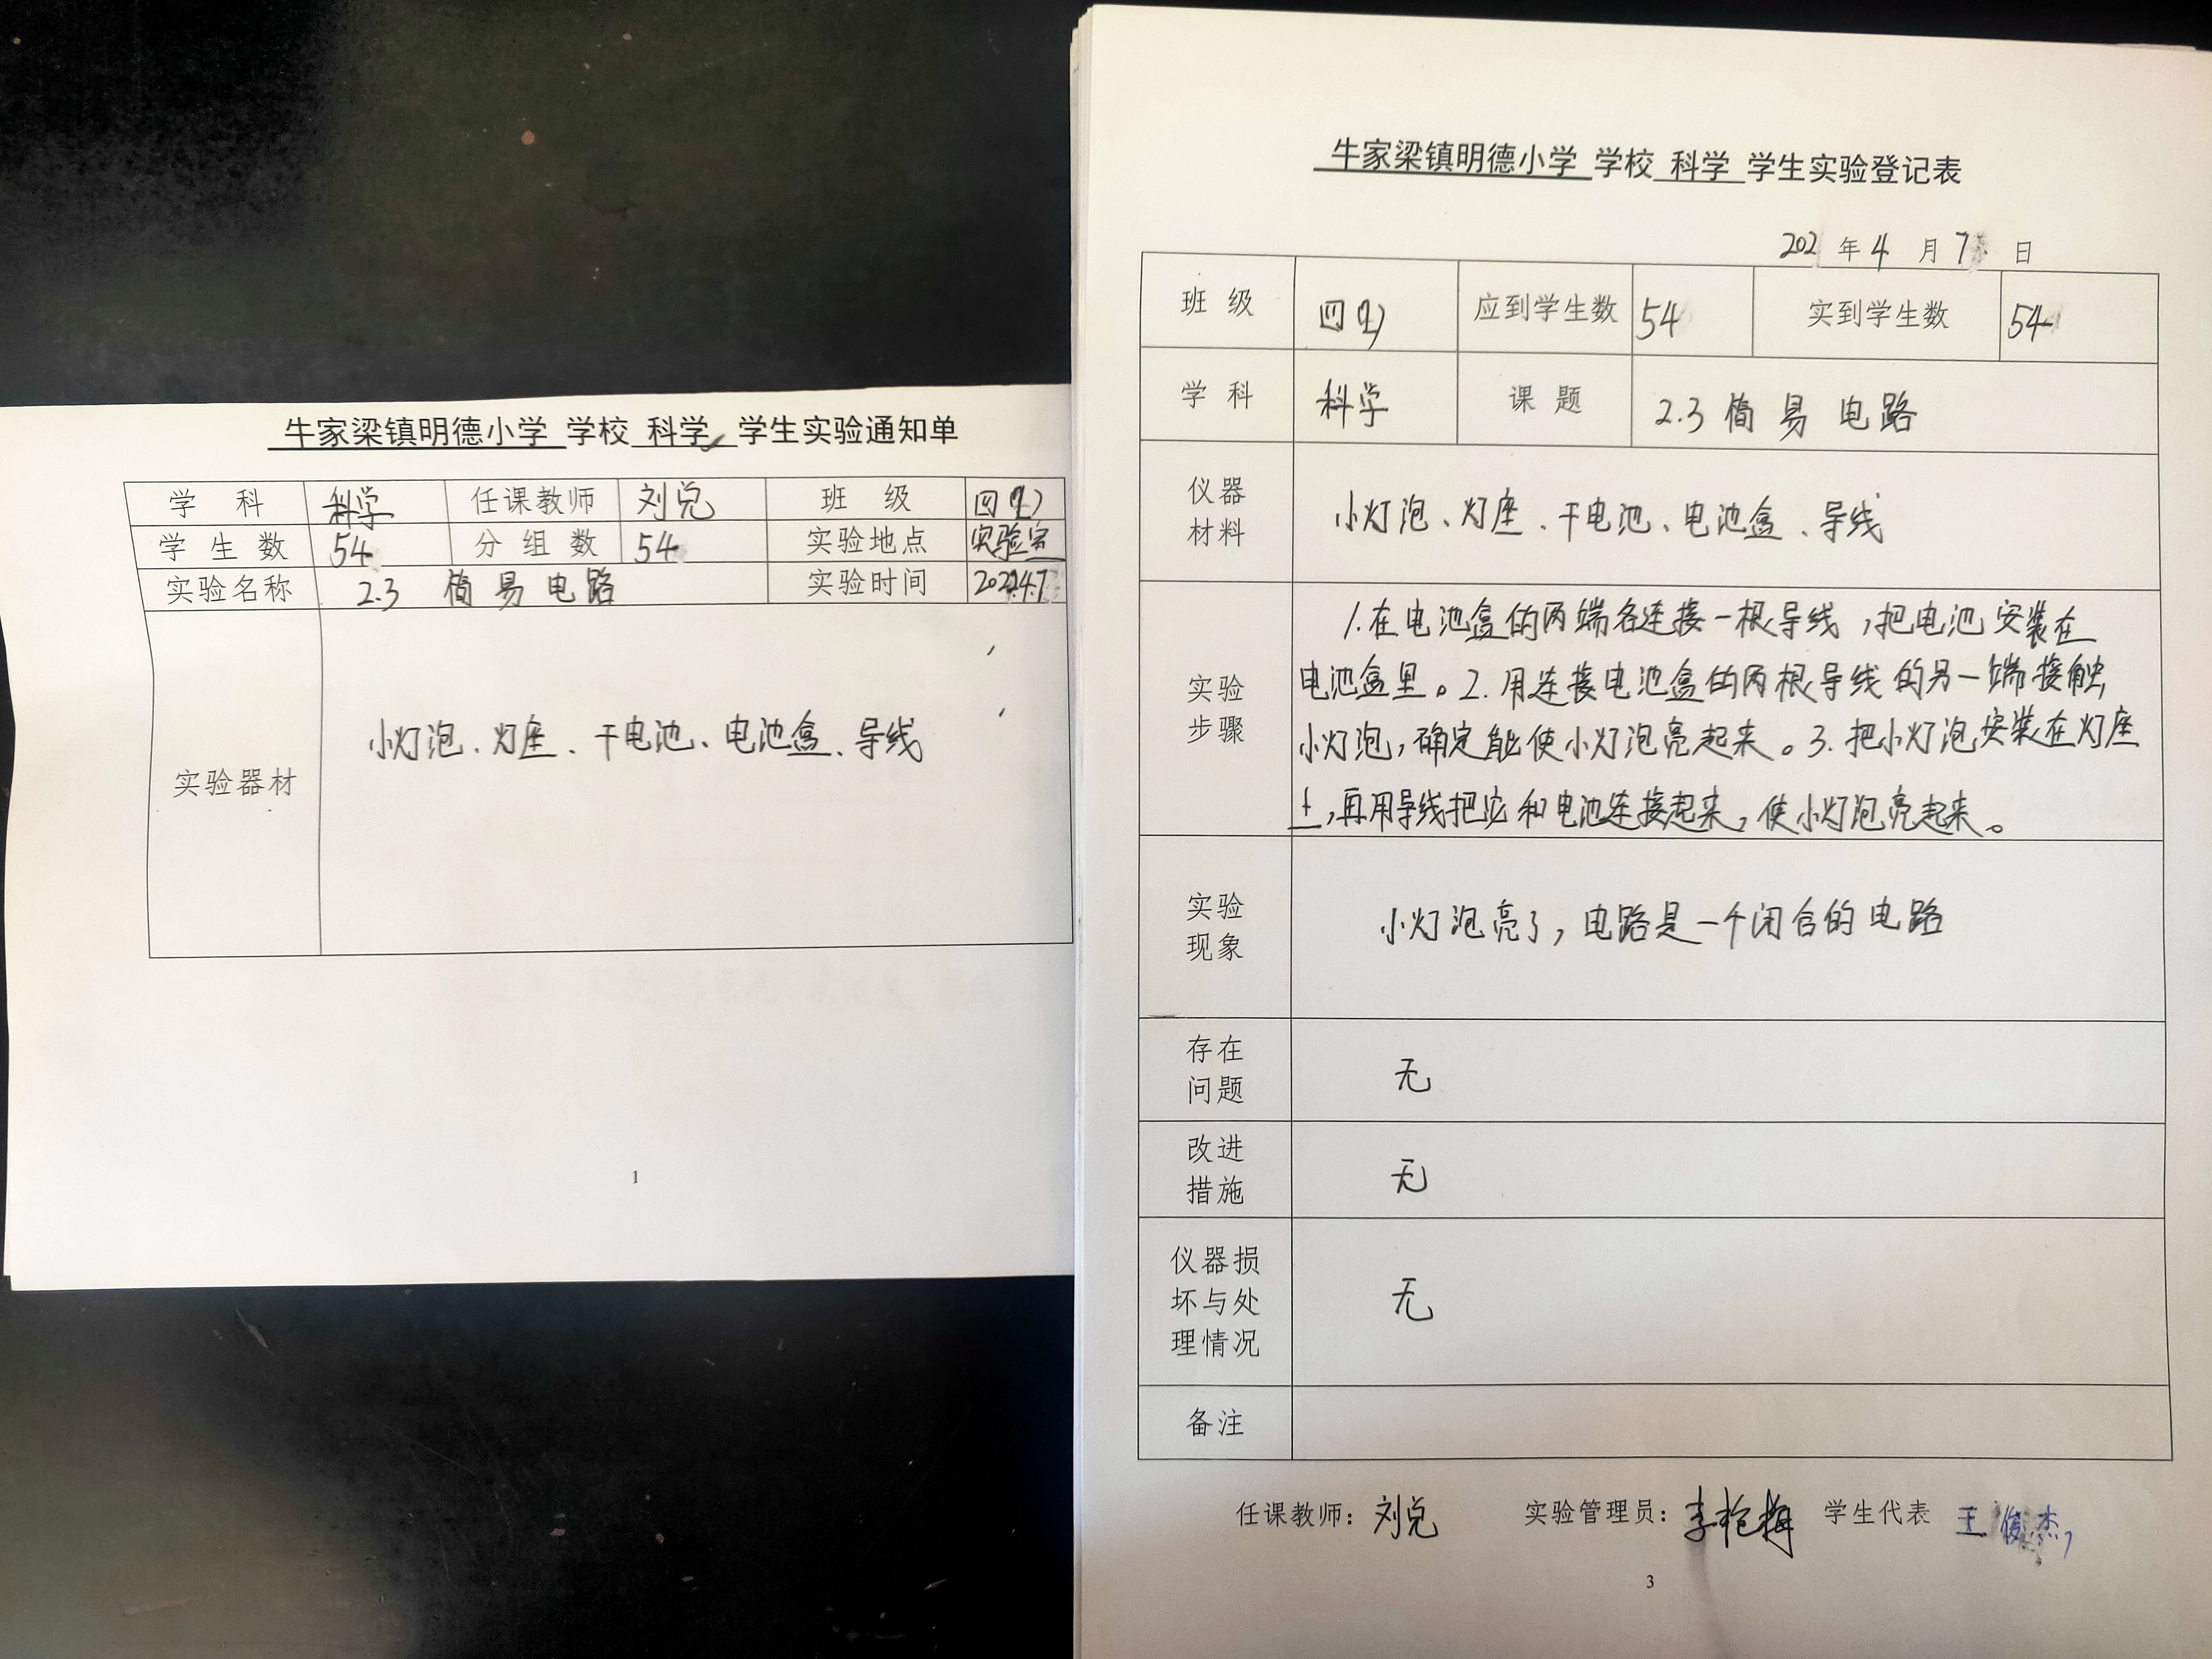 牛家梁镇明德小学 学校 科学 学生实验通知单
学 科 科学 任课教师 刘兑 班 级 四(2)
学 生 数 54 分 组 数 54 实验地点 实验室
实验名称 2.3 简易电路 实验时间
实验器材 小灯泡、灯座、干电池、电池盒、导线
1
牛家梁镇明德小学 学校 科学 学生实验登记表
2021 年 4 月 7 日
班 级 四(2) 应到学生数 54 实到学生数 54
学 科 科学 课 题 2.3 简易电路
仪器
材料
小灯泡、灯座、干电池、电池盒、导线
实验
步骤
1.在电池盒的两端各连接一根导线,把电池安装在
电池盒里。2.用连接电池盒的两根导线的另一端接触
小灯泡,确定能使小灯泡亮起来。3.把小灯泡安装在灯座
上,再用导线把它和电池连接起来,使小灯泡亮起来。
实验
现象
小灯泡亮了,电路是一个闭合的电路
存在
问题
无
改进
措施
无
仪器损
坏与处
理情况
无
备注
任课教师: 刘兑 实验管理员: 学生代表 王俊杰
3